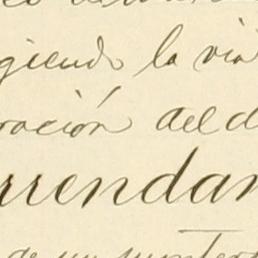 giendo la via
ración del d
rrendam
de un